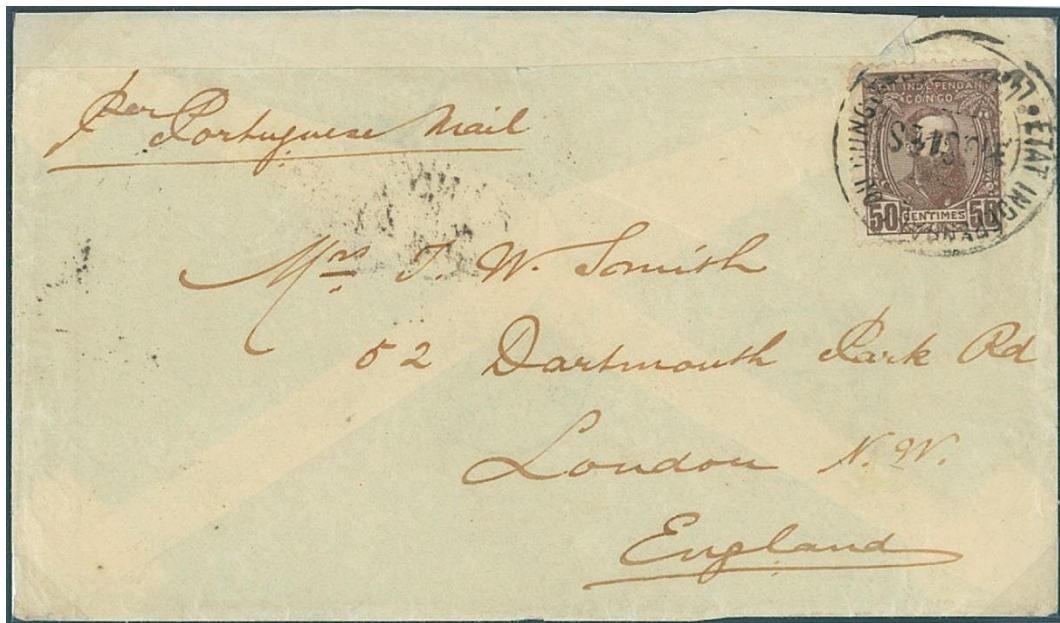 Per Portuguese Mail
ETAT INDEPENDANT
CONGO
50 CENTIMES 50
ETAT IND
DU CONGO
Mrs T. W. Smith
52 Dartmouth Park Rd
London N.W.
England